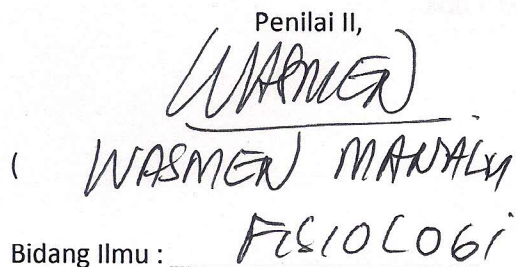 Penilai II,
WASMEN
( WASMEN MANALU
Bidang Ilmu : FISIOLOGI